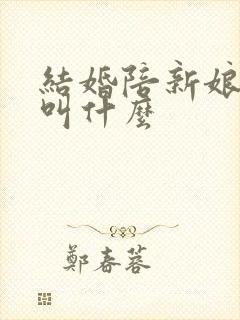 結婚陪新娘
叫什麼
鄭春蓉